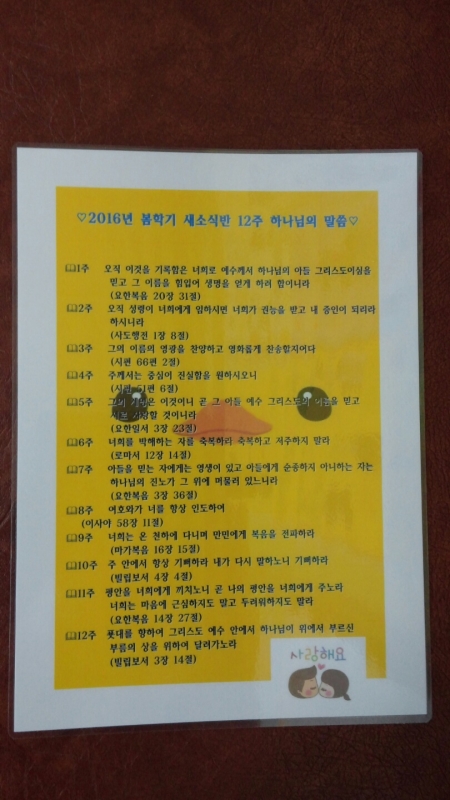 ♡2016년 봄학기 새소식반 12주 하나님의 말씀♡
1주 오직 이것을 기록함은 너희로 예수께서 하나님의 아들 그리스도이심을
믿고 그 이름을 힘입어 생명을 얻게 하려 함이니라
(요한복음 20장 31절)
2주 오직 성령이 너희에게 임하시면 너희가 권능을 받고 내 증인이 되리라
하시니라
(사도행전 1장 8절)
3주 그의 이름의 영광을 찬양하고 영화롭게 찬송할지어다
(시편 66편 2절)
4주 주께서는 중심이 진실함을 원하시오니
(시편 51편 6절)
5주 그의 계명은 이것이니 곧 그 아들 예수 그리스도의 이름을 믿고
서로 사랑할 것이니라
(요한일서 3장 23절)
6주 너희를 박해하는 자를 축복하라 축복하고 저주하지 말라
(로마서 12장 14절)
7주 아들을 믿는 자에게는 영생이 있고 아들에게 순종하지 아니하는 자는
하나님의 진노가 그 위에 머물러 있느니라
(요한복음 3장 36절)
8주 여호와가 너를 항상 인도하여
(이사야 58장 11절)
9주 너희는 온 천하에 다니며 만민에게 복음을 전파하라
(마가복음 16장 15절)
10주 주 안에서 항상 기뻐하라 내가 다시 말하노니 기뻐하라
(빌립보서 4장 4절)
11주 평안을 너희에게 끼치노니 곧 나의 평안을 너희에게 주노라
너희는 마음에 근심하지도 말고 두려워하지도 말라
(요한복음 14장 27절)
12주 푯대를 향하여 그리스도 예수 안에서 하나님이 위에서 부르신
부름의 상을 위하여 달려가노라
(빌립보서 3장 14절)
사랑해요